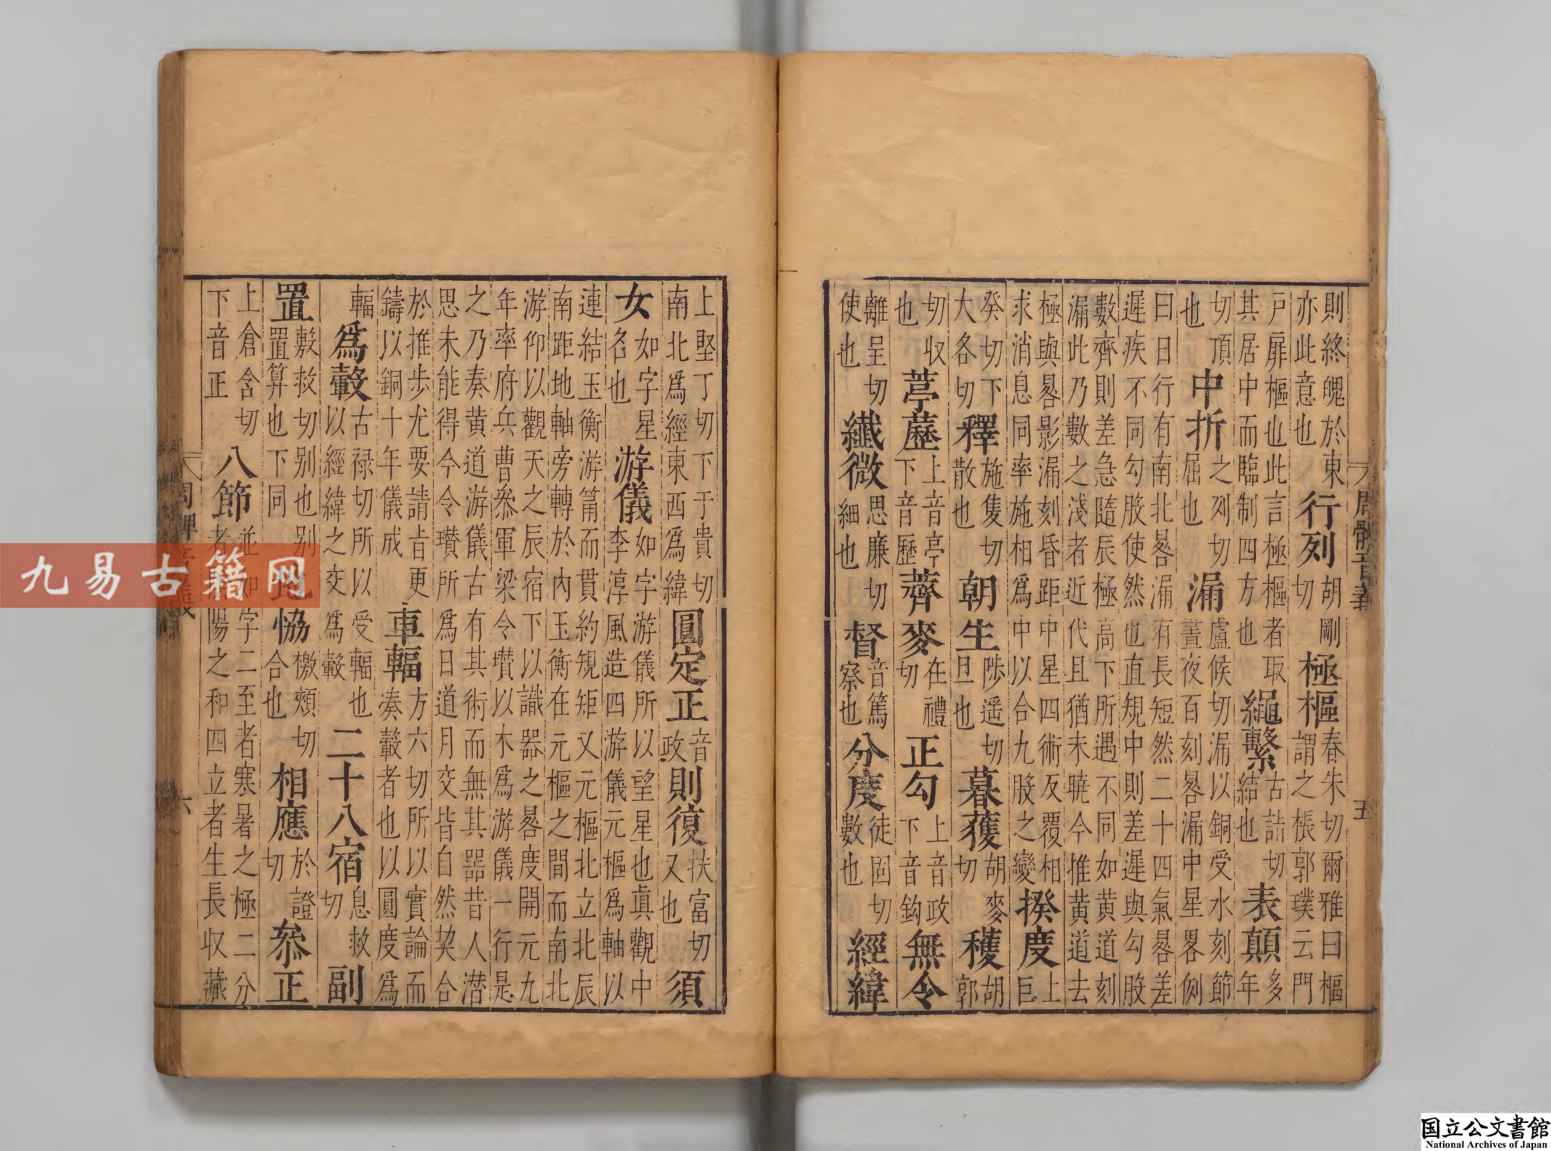 則終魄於東亦此意也行列胡剛切極樞春朱切爾雅曰樞謂之棖郭璞云門
戸扉樞也此言極樞者取其居中而臨制四方也繩繫古詣切結也表顛多年
切頂也中折之列切屈也漏盧候切漏以銅受水刻節晝夜百刻晷漏中星畧例
曰日行有南北晷漏有長短然二十四氣晷差遲疾不同勾股使然也直規中則差遲與勾股
數齊則差急隨辰極高下所遇不同如黄道刻漏此乃數之淺者近代且猶未曉今推黄道去
極與晷影漏刻昏距中星四術反覆相求消息同率施相爲中以合九股之變揆度上巨
癸切下大各切釋施隻切散也朝生陟遥切旦也暮獲胡麥切穫胡郭
切收也葶藶上音亭下音歷薺麥在禮切正勾上音政下音鈎無令
離呈切使也纖微思廉切細也督音篤察也分度徒固切數也經緯
周髀音義
五
上堅丁切下于貴切南北爲經東西爲緯圓定正音政則復扶富切又也須
女如字星名也游儀如字游儀所以望星也眞觀中李淳風造四游儀元樞爲軸以
連結玉衡游筩而貫約規矩又元樞北立北辰南距地軸旁轉於内玉衡在元樞之間而南北
游仰以觀天之辰宿下以識器之晷度開元九年率府兵曹叅軍梁令瓚以木爲游儀一行是
之乃奏黄道游儀古有其術而無其器昔人潛思未能得今令瓚所爲日道月交皆自然契合
於推步尤要請㫖更鑄以銅十年儀成車輻方六切所以實論而湊轂者也以圓度爲
輻爲轂古禄切所以受輻也以經緯之交爲轂二十八宿息救切副
置敷救切别也别置算也下同協檄頰切合也相應於證切叅正
上倉含切下音正八節並如字二至者寒暑之極二分者陽之和四立者生長收藏
六
九易古籍网
国立公文書館
National Archives of Japan